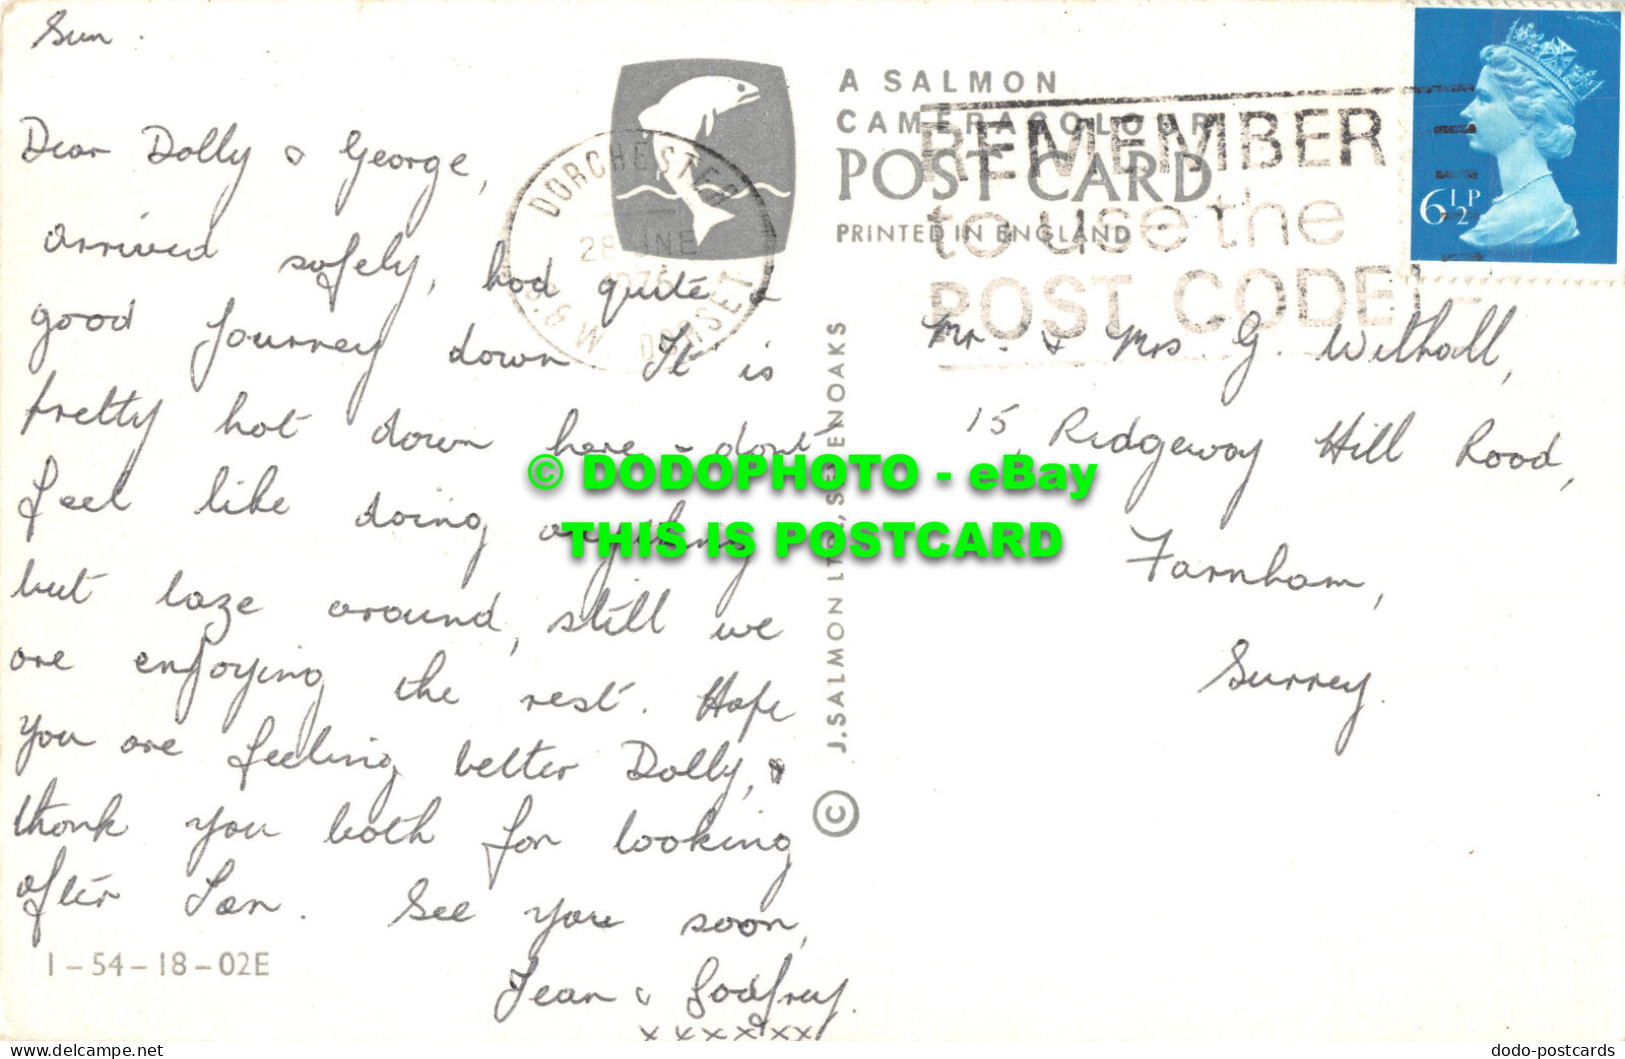 Sun.
Dear Dolly & George,
arrived safely, had quite a
good journey down It is
pretty hot down here & dont
feel like doing anything
but laze around, still we
are enjoying the rest. Hope
you are feeling better Dolly, &
thank you both for looking
after Ian. See you soon,
Jean & Godfrey.
xxxxxxx
1-54-18-02E
DORCHESTER
28 JNE
197
DORSET
A SALMON
CAMERACOLOUR
POST CARD
PRINTED IN ENGLAND
REMEMBER
to use the
POST CODE
6½P
Mr. & Mrs. G. Withall,
15, Ridgeway Hill Road,
Farnham,
Surrey.
© J. SALMON LTD., SEVENOAKS
© DODOPHOTO - eBay
THIS IS POSTCARD
I-54-18-02E
delcampe.net
dodo-postcards